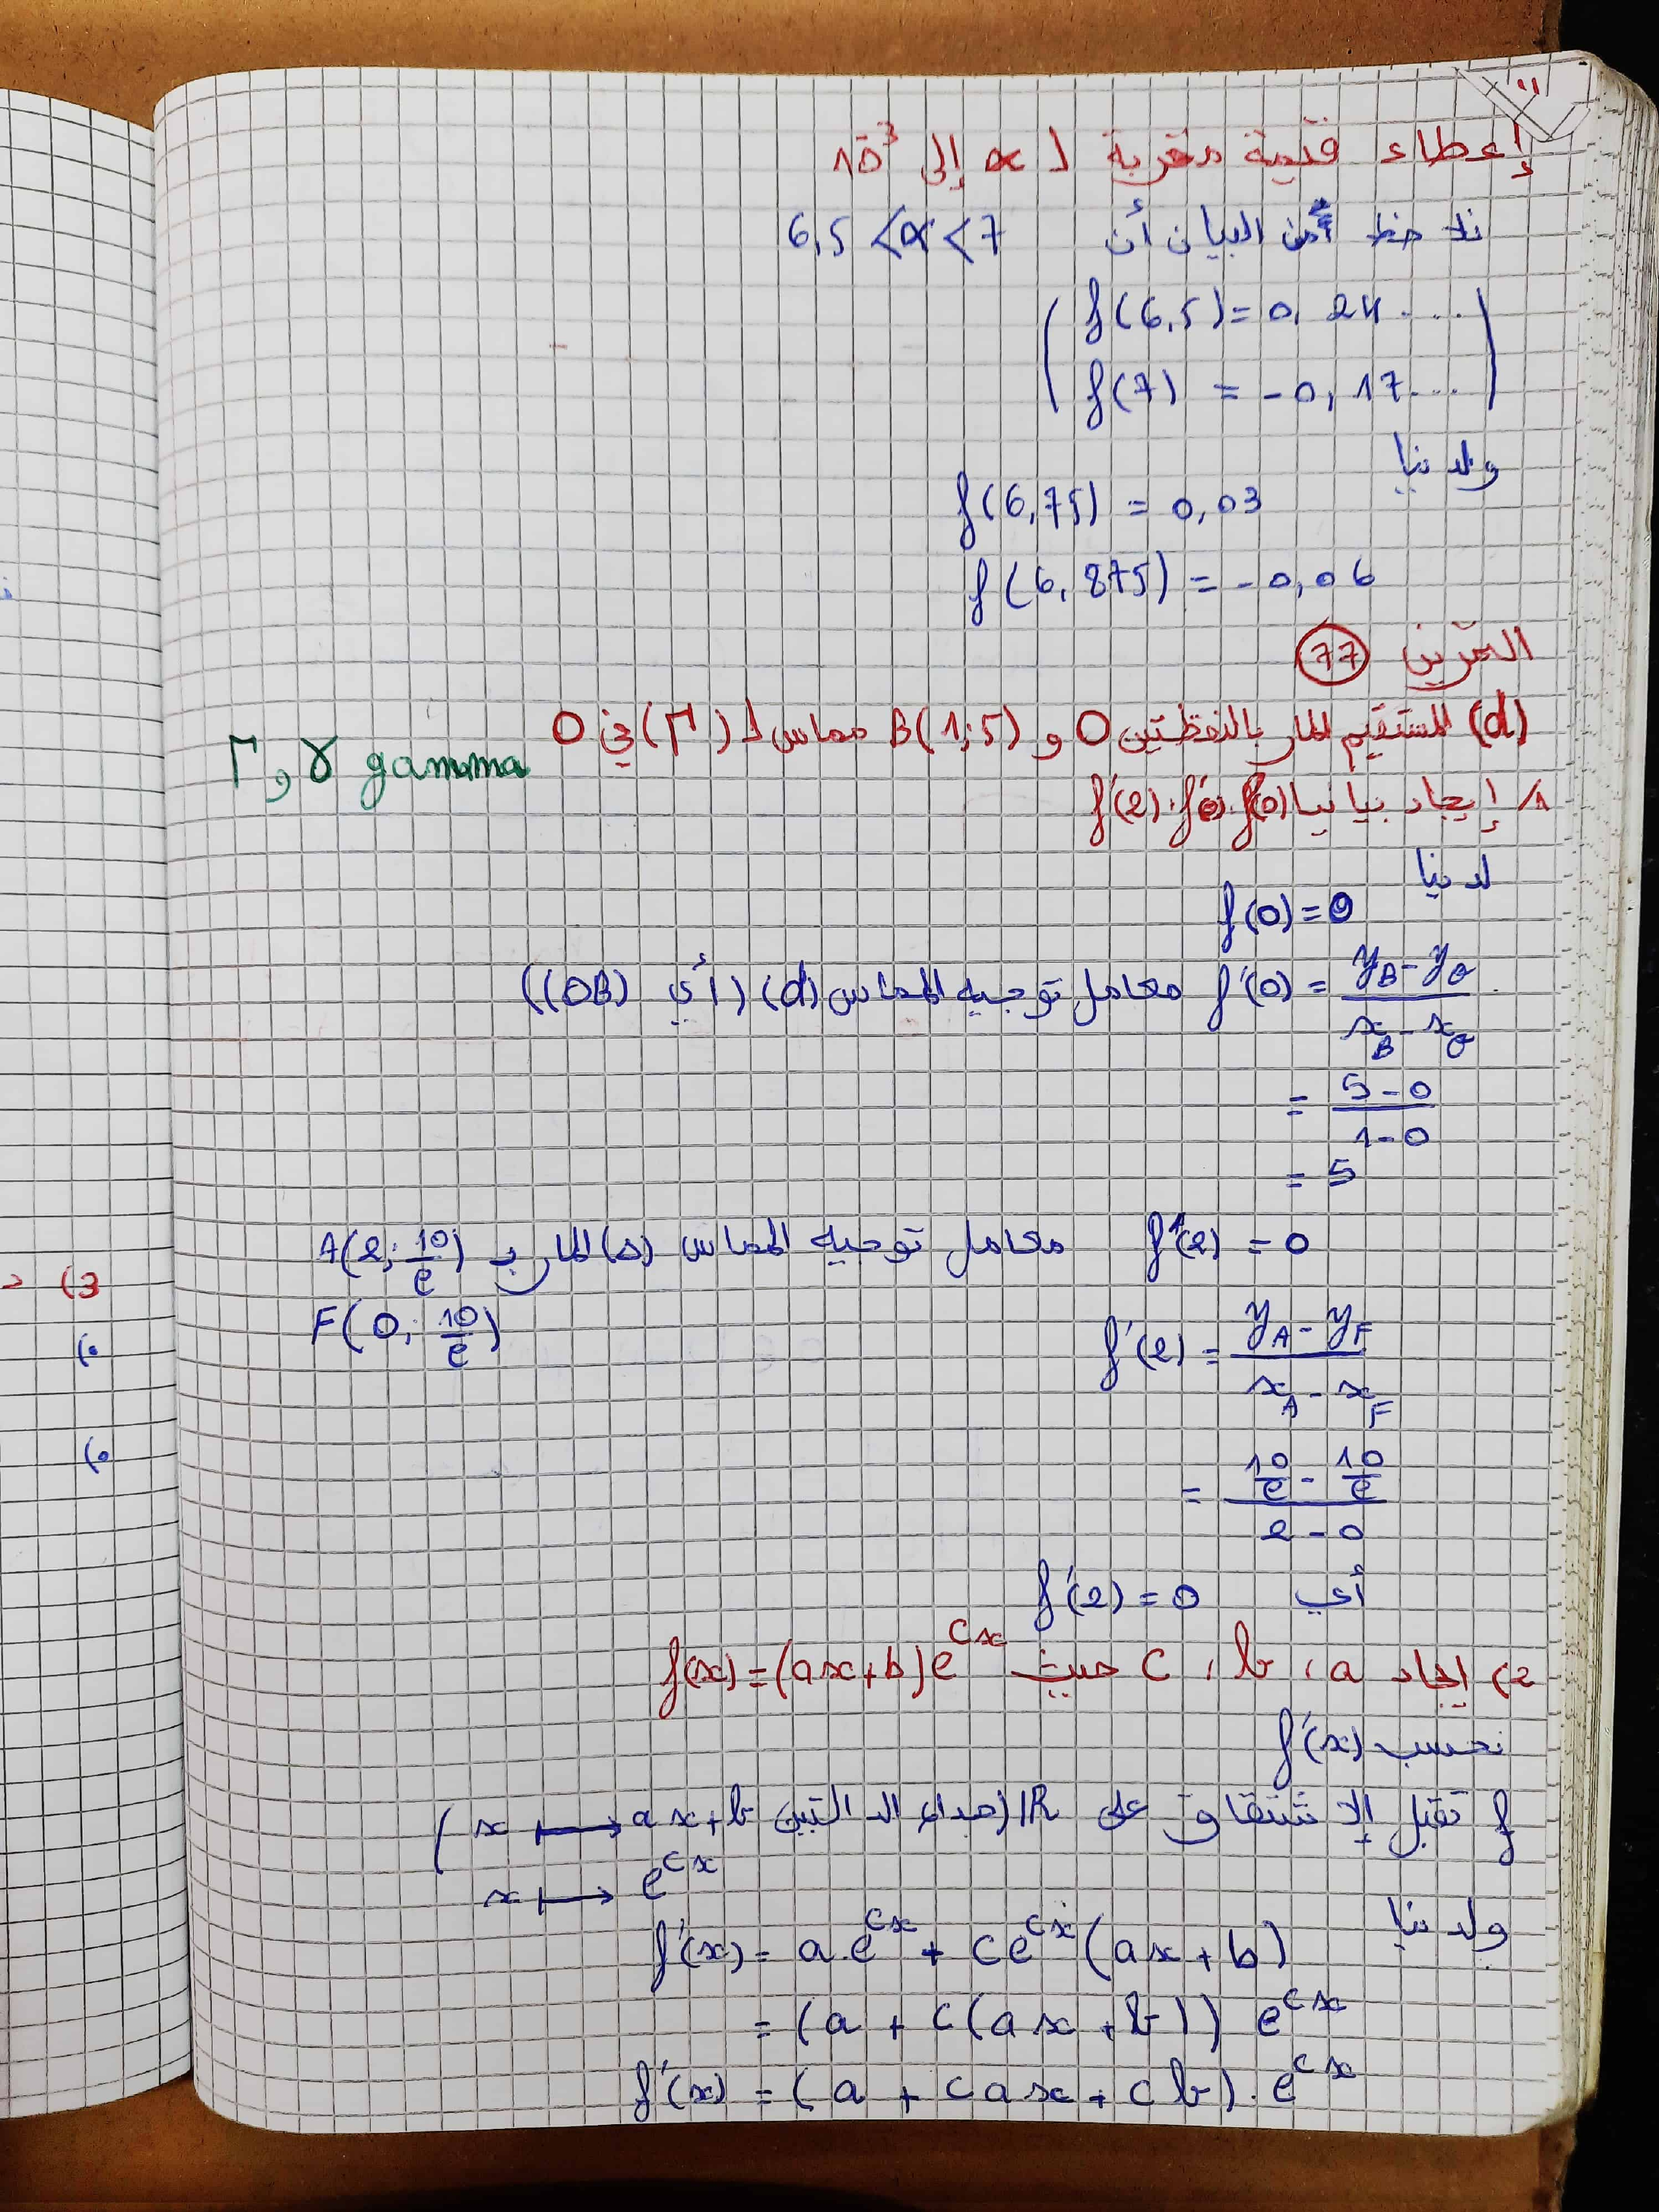 إعطاء قيمة مقربة لـ α إلى 10⁻³
نلاحظ من البيان أن 6,5 < α < 7
f(6,5) = 0,24....
f(7) = -0,17...
ولدينا
f(6,75) = 0,03
f(6,875) = -0,06
التمرين 77
(d) المستقيم المار بالنقطتين O و B(1;5) مماس لـ (Γ) في O
Γ و γ gamma
1/ إيجاد بيانيا f(0) ، f'(0) ، f'(2)
لدينا
f(0) = 0
f'(0) = (y_B - y_O)/(x_B - x_O) معامل توجيه المماس (d) (أي (OB))
= (5-0)/(1-0)
= 5
f'(2) = 0 معامل توجيه المماس (Δ) المار بـ A(2; 10/e)
F(0; 10/e)
f'(2) = (y_A - y_F)/(x_A - x_F)
= (10/e - 10/e)/(2-0)
أي f'(2) = 0
2) ايجاد a ، b ، c حيث f(x) = (ax+b)e^{cx}
نحسب f'(x)
f تقبل الإشتقاق على IR (جداء الدالتين x ⟼ ax+b
x ⟼ e^{cx})
ولدينا
f'(x) = a.e^{cx} + ce^{cx}(ax+b)
= (a + c(ax+b)) e^{cx}
f'(x) = (a + cax + cb).e^{cx}
3)